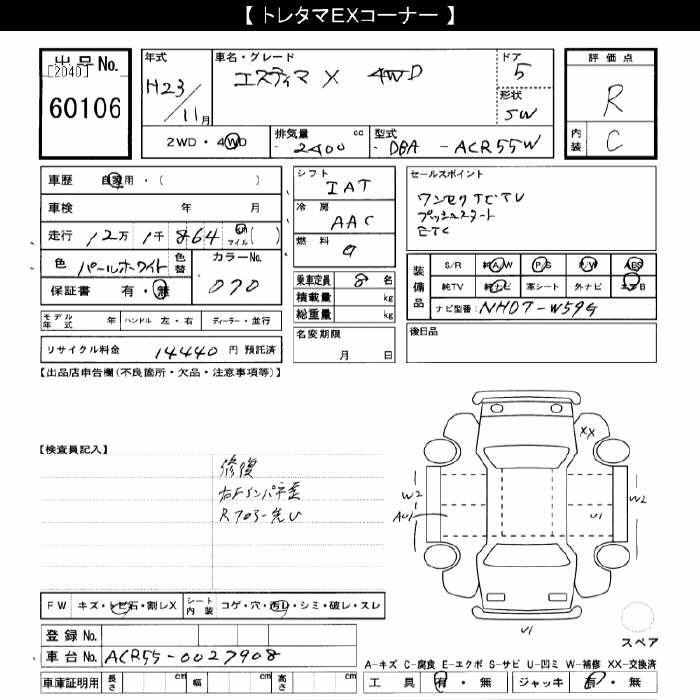 【 トレタマEXコーナー 】
出品No.
[2040]
60106
年式
H23/11月
車名・グレード
エスティマ X 4WD
ドア
5
形状
SW
2WD・4WD
排気量 cc
2400
型式
DBA - ACR55W
評価点
R
内装
C
車歴 自家用・( )
車検 年 月
走行 12万 1千 864 km マイル ( )
色 パールホワイト 色替
カラーNo.
070
保証書 有・無
モデル年式 年 ハンドル 左・右 ディーラー・並行
リサイクル料金 14440 円 預託済
シフト
IAT
冷房
AAC
燃料
G
乗車定員 8 名
積載量 kg
総重量 kg
名変期限
月 日
セールスポイント
ワンセグTCTV
プッシュスタート
ETC
装備品
S/R 純A/W P/S P/W ABS
純TV 純ナビ 革シート 外ナビ エアB
ナビ型番: NHDT-W59G
後日品
【出品店申告欄(不良箇所・欠品・注意事項等)】
【検査員記入】
修復
XX
W2
AU1
U1
W2
U1
FW キズ・トビ石・割レX シート内装 コゲ・穴・汚レ・シミ・破レ・スレ
登録No.
車台No. ACR55-0027908
車庫証明用 長さ cm 幅 cm 高さ cm
スペア
A-キズ C-腐食 E-エクボ S-サビ U-凹ミ W-補修 XX-交換済
工具 有・無 ジャッキ 有・無